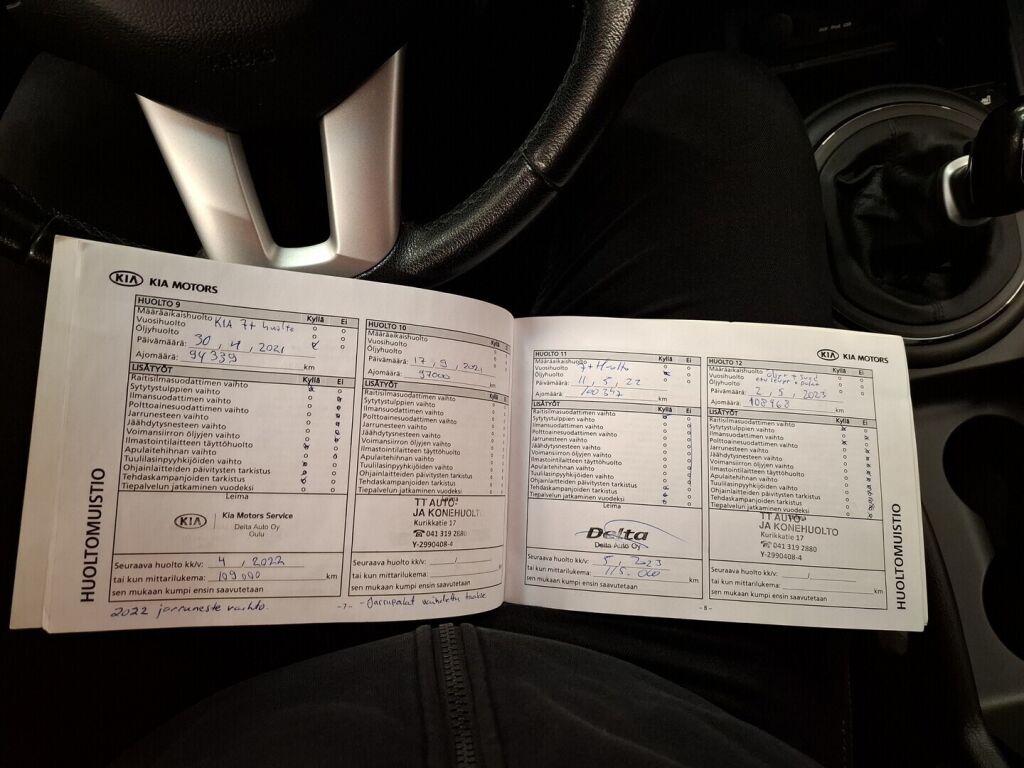 KIA KIA MOTORS
HUOLTO 9 Kyllä Ei
Määräaikaishuolto
Vuosihuolto KIA 7+ huolto
Öljyhuolto
Päivämäärä: 30, 4, 2021
Ajomäärä: 94339 km
LISÄTYÖT Kyllä Ei
Raitisilmasuodattimen vaihto
Sytytystulppien vaihto
Ilmansuodattimen vaihto
Polttoainesuodattimen vaihto
Jarrunesteen vaihto
Jäähdytysnesteen vaihto
Voimansiirron öljyjen vaihto
Ilmastointilaitteen täyttöhuolto
Apulaitehihnan vaihto
Tuulilasinpyyhkijöiden vaihto
Ohjainlaitteiden päivitysten tarkistus
Tehdaskampanjoiden tarkistus
Tiepalvelun jatkaminen vuodeksi
Leima
KIA Kia Motors Service
Delta Auto Oy
Oulu
Seuraava huolto kk/v: 4, 2022
tai kun mittarilukema: 109000 km
sen mukaan kumpi ensin saavutetaan
2022 jarruneste vaihto.
HUOLTOMUISTIO
HUOLTO 10 Kyllä Ei
Määräaikaishuolto
Vuosihuolto
Öljyhuolto
Päivämäärä: 17, 9, 2021
Ajomäärä: 97000 km
LISÄTYÖT Kyllä Ei
Raitisilmasuodattimen vaihto
Sytytystulppien vaihto
Ilmansuodattimen vaihto
Polttoainesuodattimen vaihto
Jarrunesteen vaihto
Jäähdytysnesteen vaihto
Voimansiirron öljyjen vaihto
Ilmastointilaitteen täyttöhuolto
Apulaitehihnan vaihto
Tuulilasinpyyhkijöiden vaihto
Ohjainlaitteiden päivitysten tarkistus
Tehdaskampanjoiden tarkistus
Tiepalvelun jatkaminen vuodeksi
TT AUTO-
JA KONEHUOLTO
Kurikkatie 17
☎ 041 319 2880
Y-2990408-4
Seuraava huolto kk/v: /
tai kun mittarilukema: km
sen mukaan kumpi ensin saavutetaan
-7- - Jarrupalat vaihdettu taakse
HUOLTO 11 Kyllä Ei
Määräaikaishuolto
Vuosihuolto 7+ Huolto
Öljyhuolto
Päivämäärä: 11, 5, 22
Ajomäärä: 100347 km
LISÄTYÖT Kyllä Ei
Raitisilmasuodattimen vaihto
Sytytystulppien vaihto
Ilmansuodattimen vaihto
Polttoainesuodattimen vaihto
Jarrunesteen vaihto
Jäähdytysnesteen vaihto
Voimansiirron öljyjen vaihto
Ilmastointilaitteen täyttöhuolto
Apulaitehihnan vaihto
Tuulilasinpyyhkijöiden vaihto
Ohjainlaitteiden päivitysten tarkistus
Tehdaskampanjoiden tarkistus
Tiepalvelun jatkaminen vuodeksi
Leima
Delta
Delta Auto Oy
Seuraava huolto kk/v: 5, 2023
tai kun mittarilukema: 115.000 km
sen mukaan kumpi ensin saavutetaan
KIA KIA MOTORS
HUOLTO 12 Kyllä Ei
Määräaikaishuolto
Vuosihuolto
Öljyhuolto
Päivämäärä: 2, 5, 2023
Ajomäärä: 108968 km
LISÄTYÖT Kyllä Ei
Raitisilmasuodattimen vaihto
Sytytystulppien vaihto
Ilmansuodattimen vaihto
Polttoainesuodattimen vaihto
Jarrunesteen vaihto
Jäähdytysnesteen vaihto
Voimansiirron öljyjen vaihto
Ilmastointilaitteen täyttöhuolto
Apulaitehihnan vaihto
Tuulilasinpyyhkijöiden vaihto
Ohjainlaitteiden päivitysten tarkistus
Tehdaskampanjoiden tarkistus
Tiepalvelun jatkaminen vuodeksi
TT AUTO-
JA KONEHUOLTO
Kurikkatie 17
☎ 041 319 2880
Y-2990408-4
Seuraava huolto kk/v: /
tai kun mittarilukema: km
sen mukaan kumpi ensin saavutetaan
-8-
HUOLTOMUISTIO